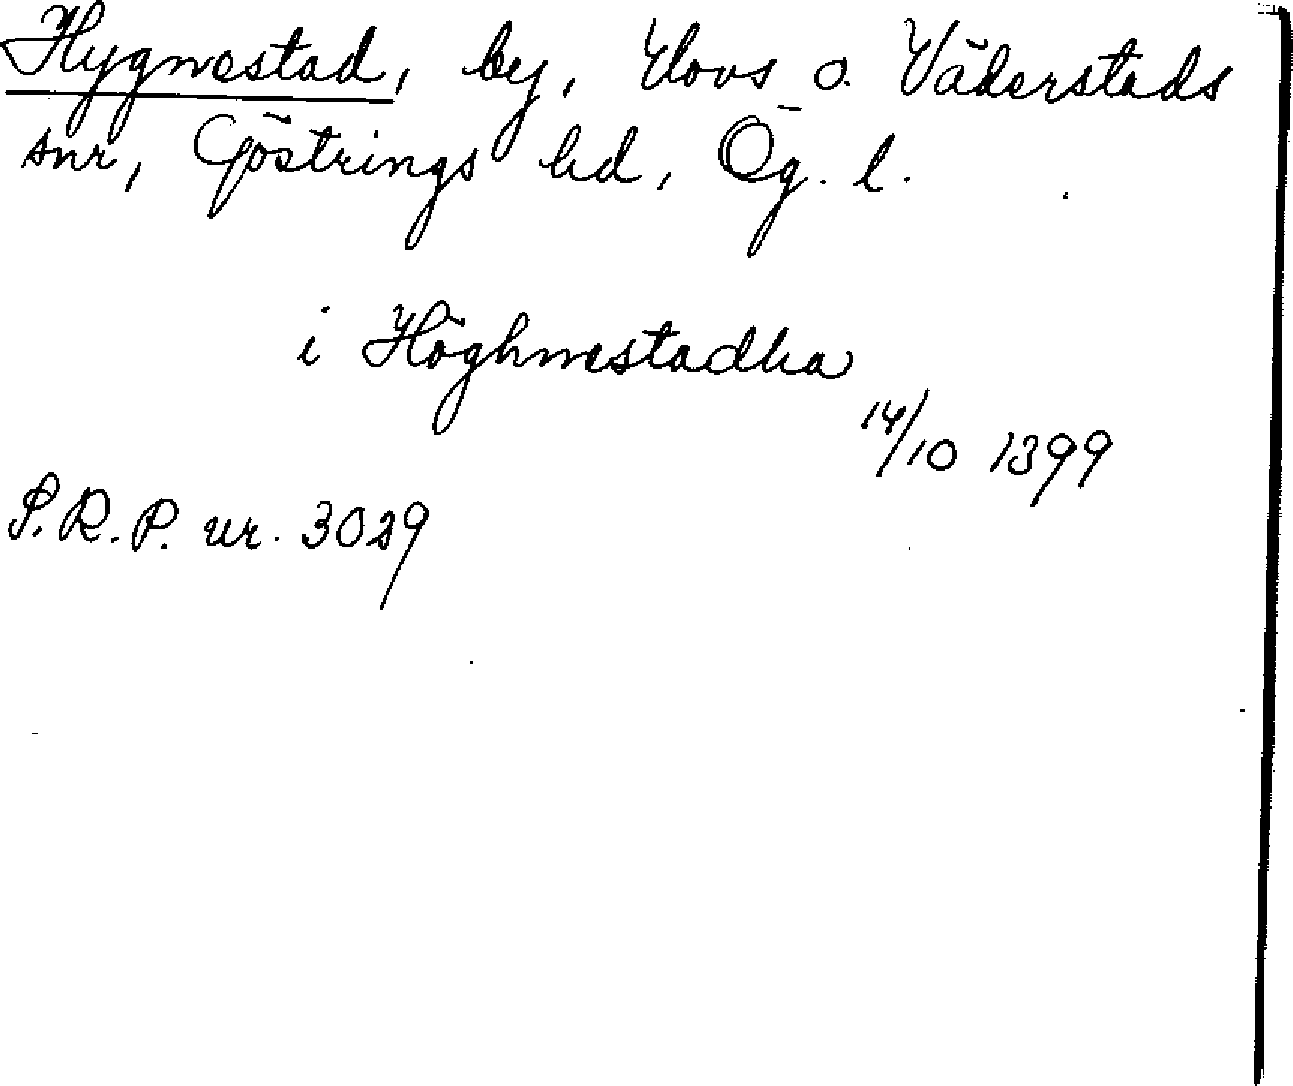 Hygnestad, by, Hovs o. Väderstads
snr, Göstrings hd, Ög. l.
i Höghnestadha
14/10 1399
S.R.P. nr. 3029